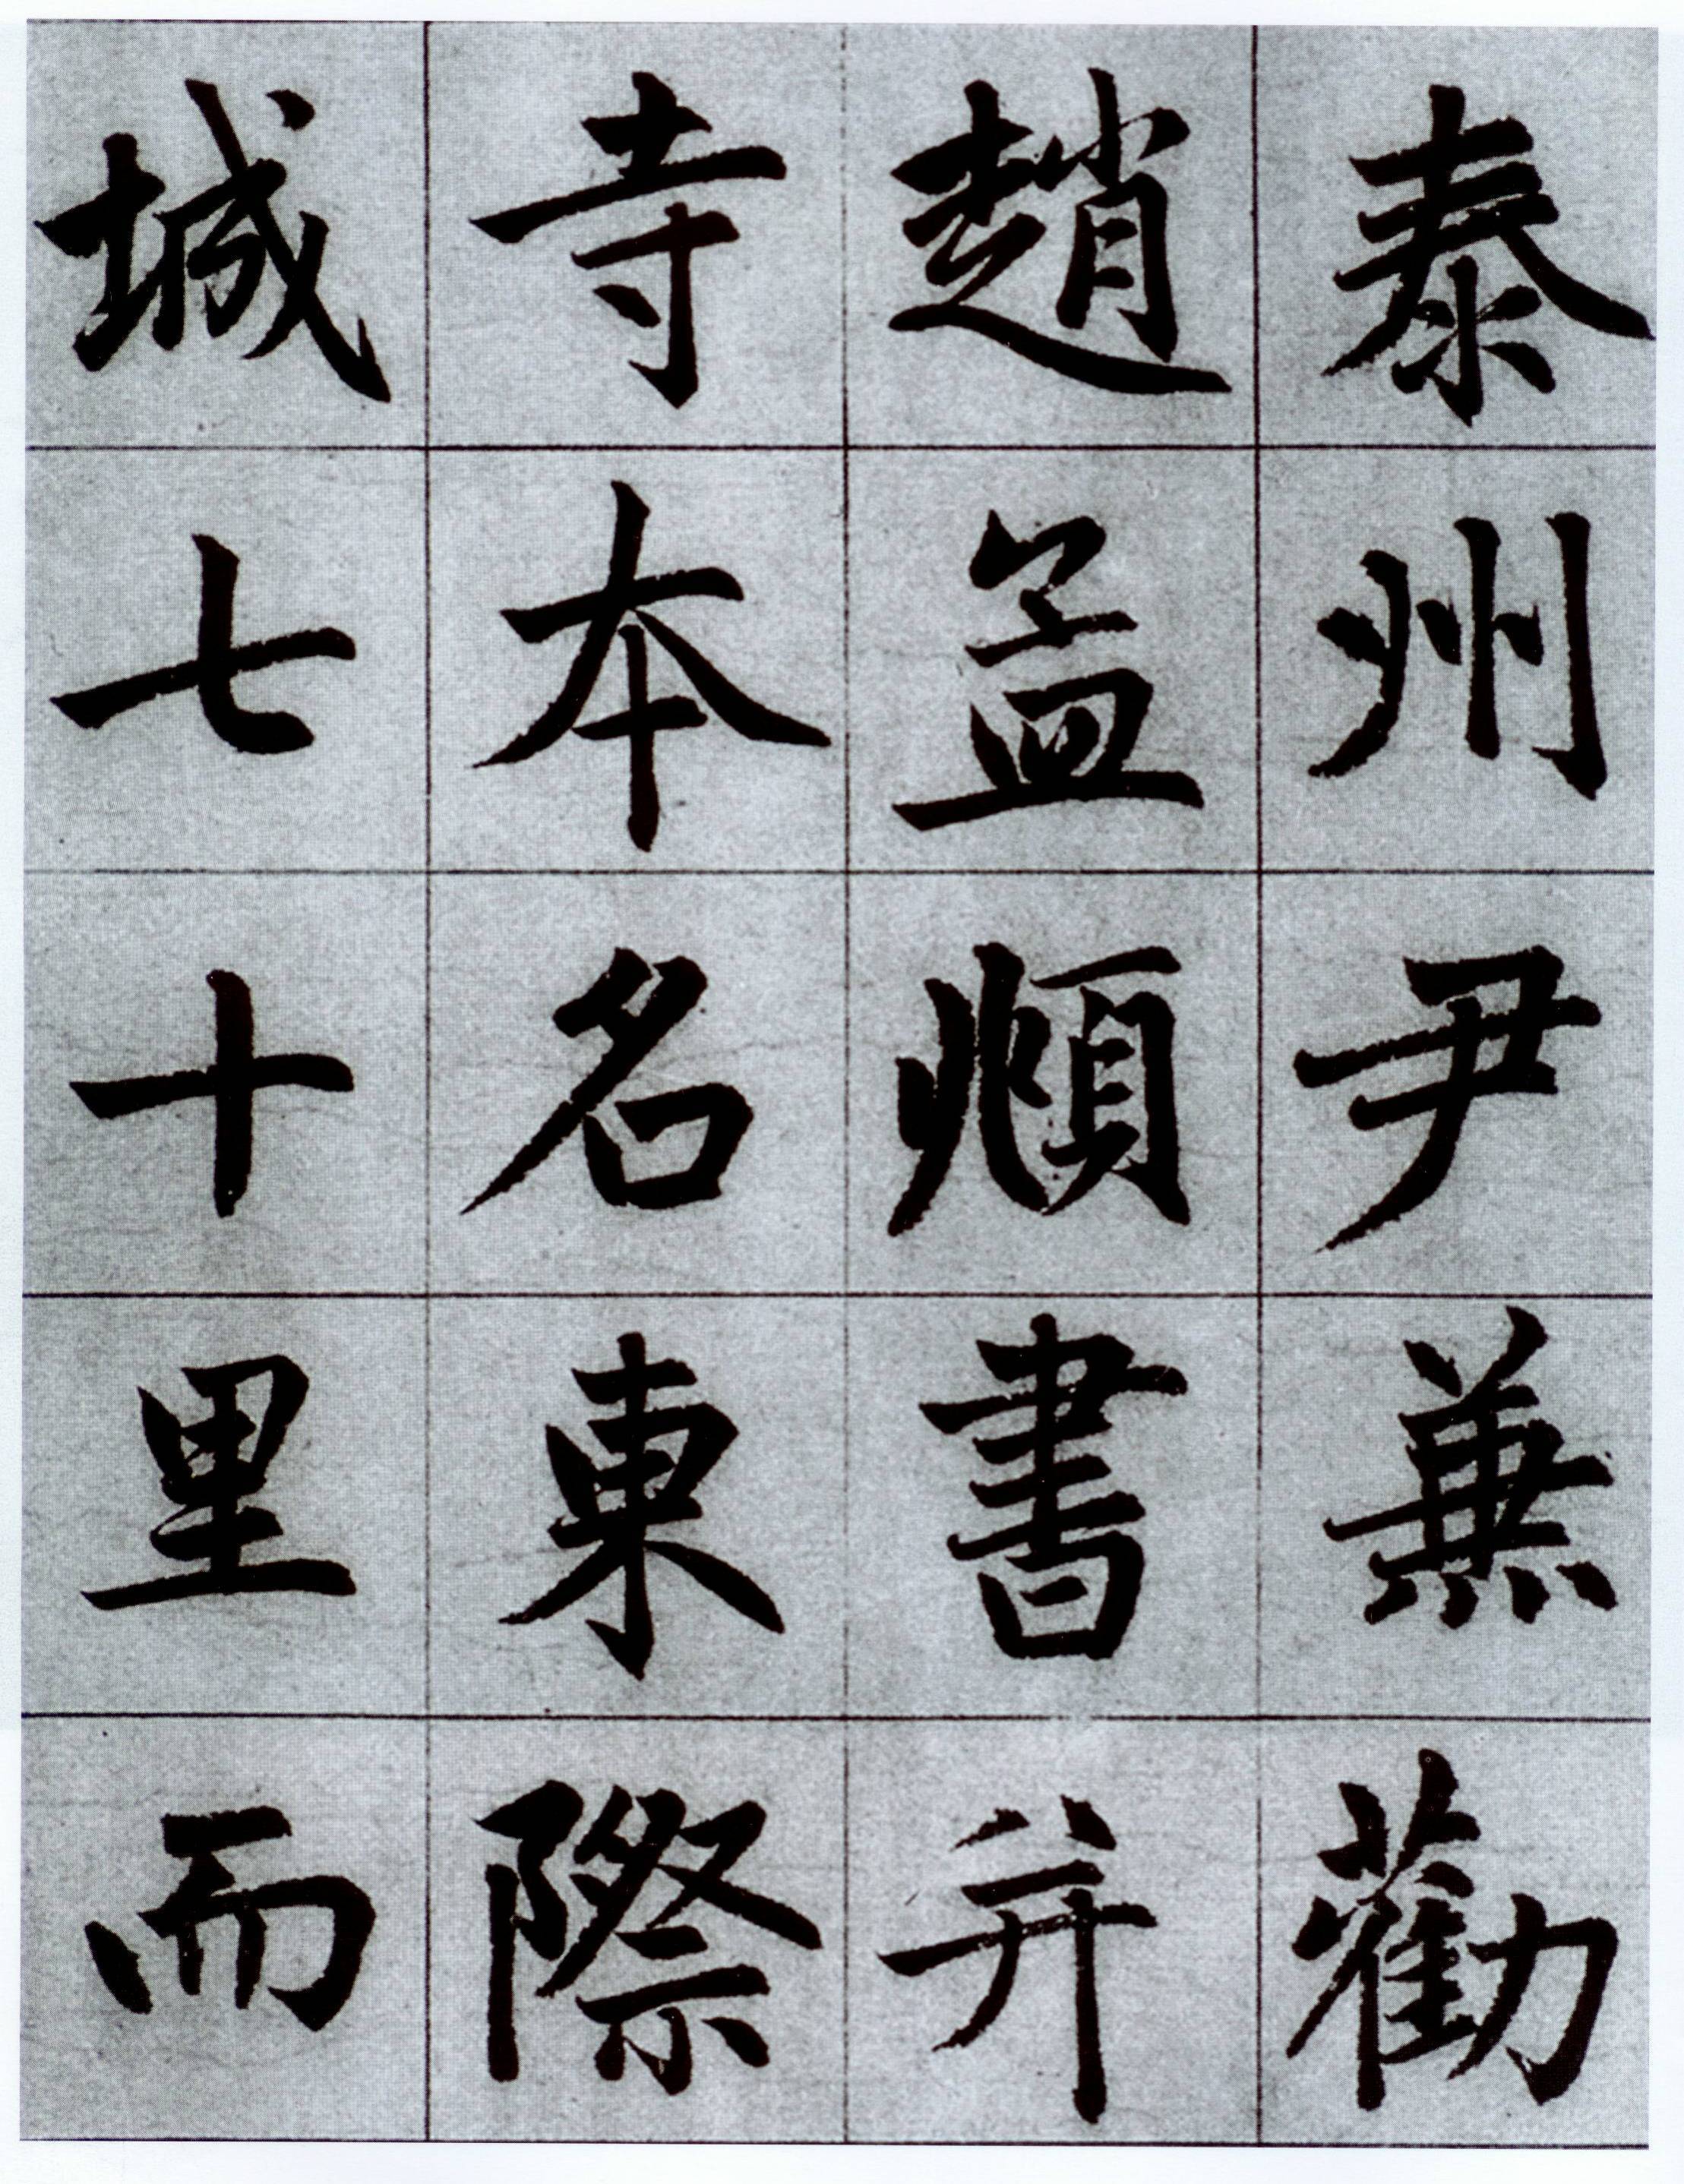 泰州尹兼勸
趙孟頫書并
寺本名東際
城七十里而